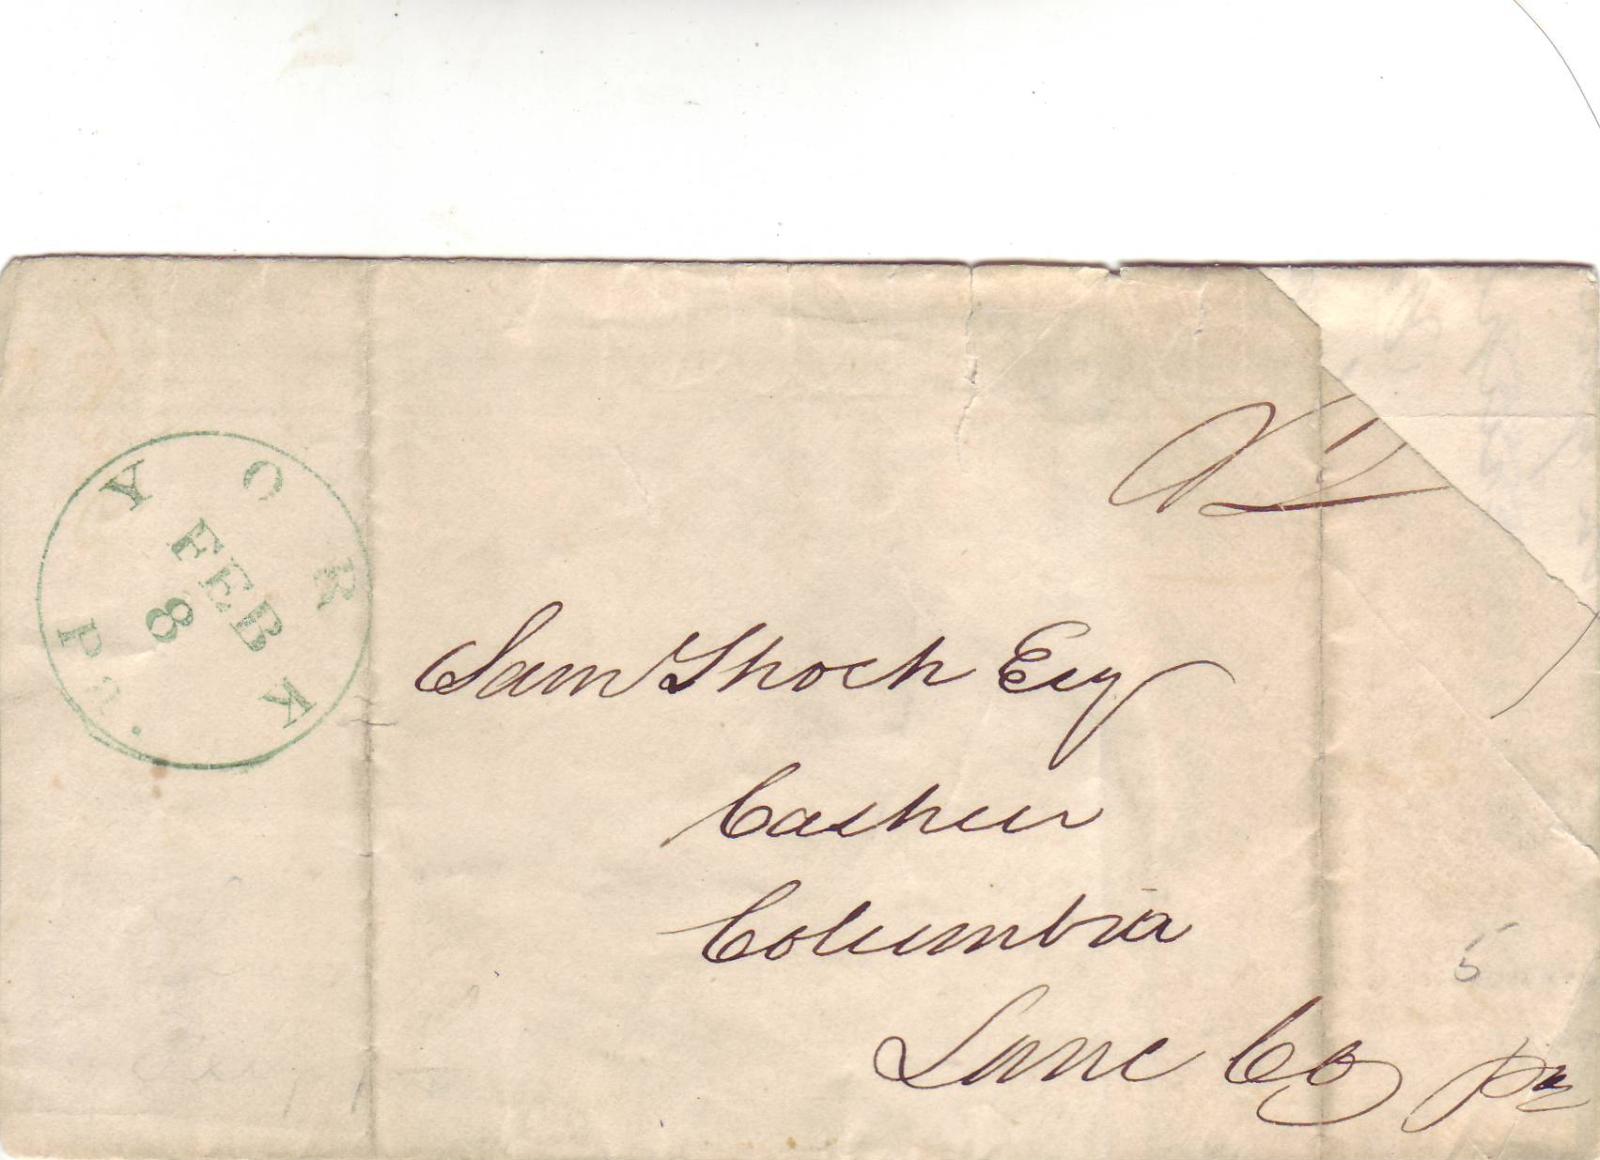 YORK Pa.
FEB
8
Sam Shoch Esq
Cashier
Columbia
Lanc Co pa
5